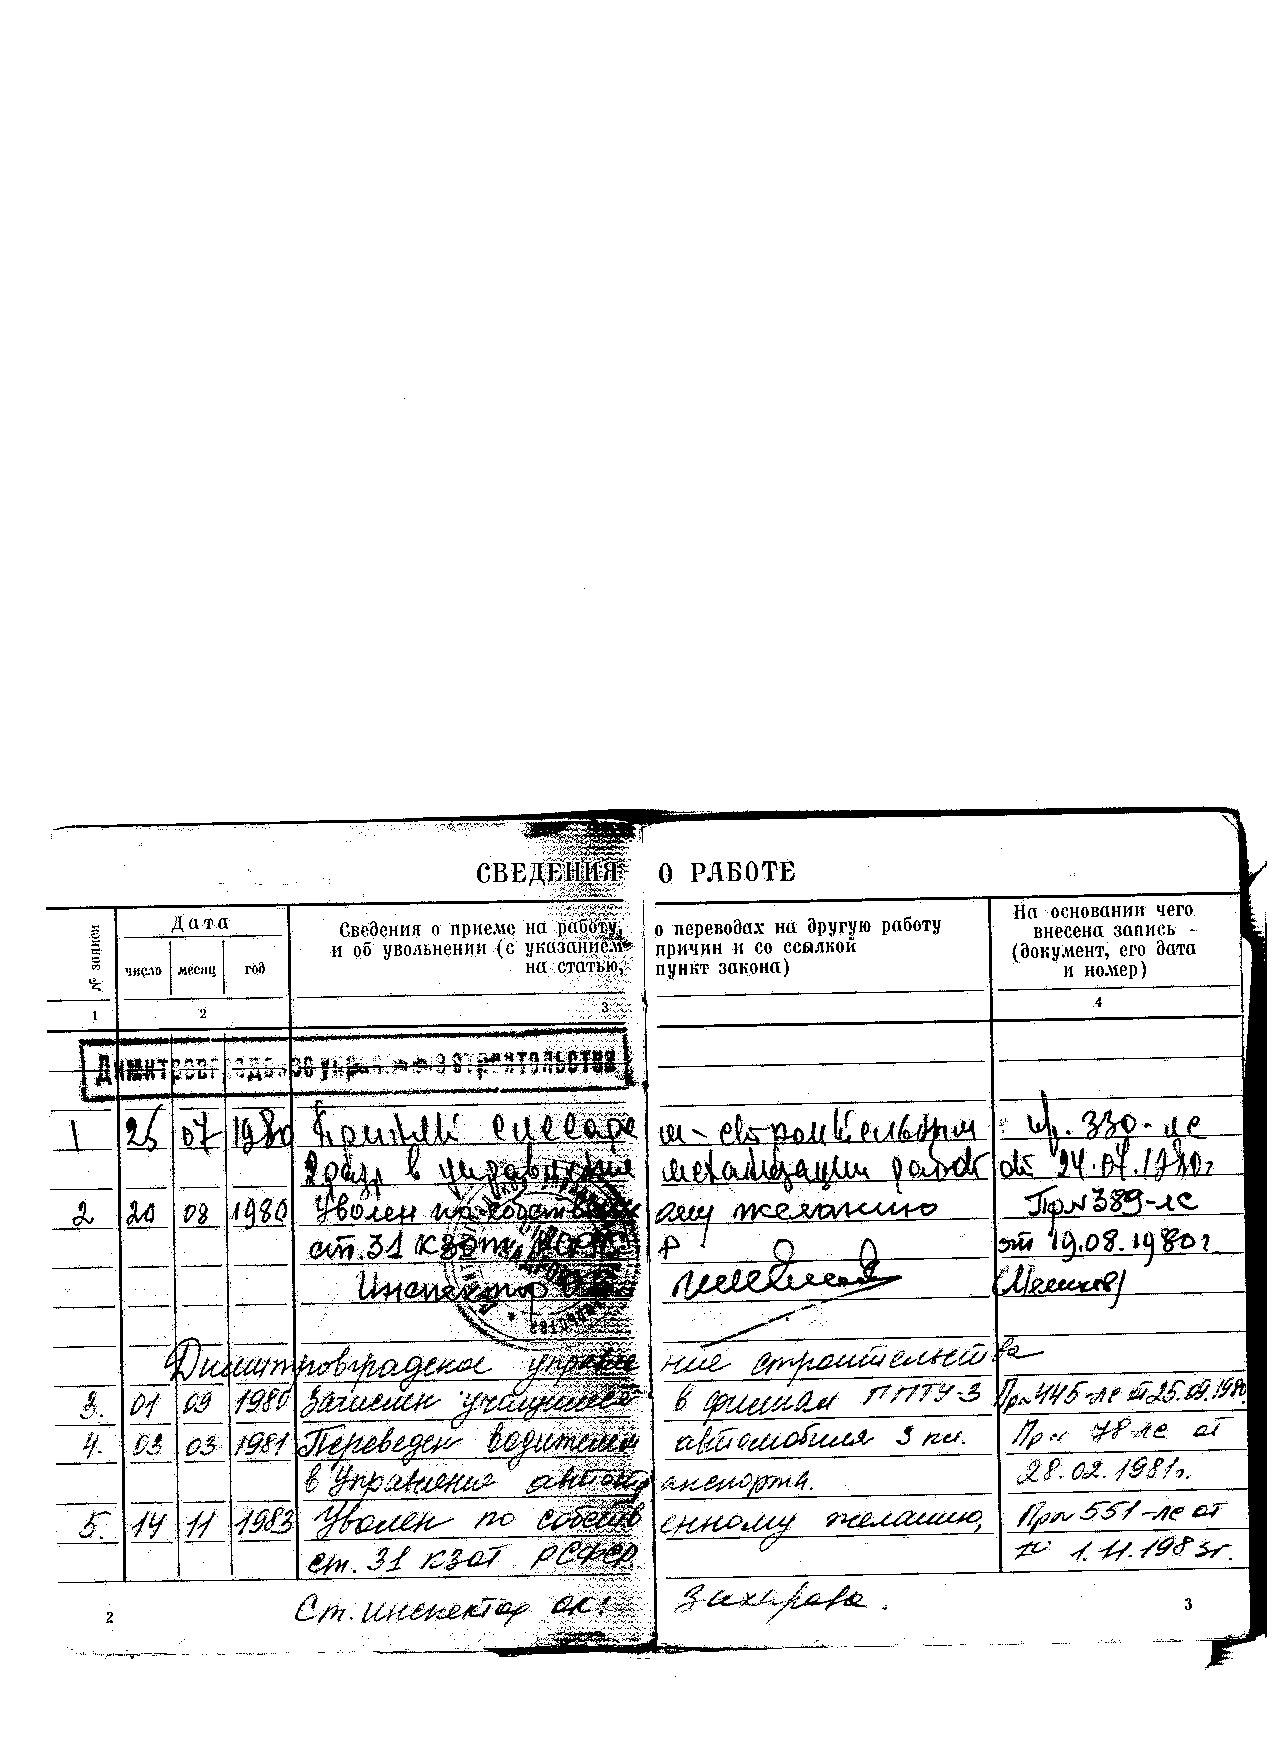 СВЕДЕНИЯ О РАБОТЕ
№ записи
Дата
Сведения о приеме на работу, о переводах на другую работу
и об увольнении (с указанием причин и со ссылкой
на статью, пункт закона)
На основании чего
внесена запись
(документ, его дата
и номер)
число месяц год
1 2 3 4
Димитровградское управление строительства
1 25 07 1980 Принят слесарем-строительным пр. 330-лс
2 разр. в управление механизации работ от 24.07.1980г
2 20 08 1980 Уволен по собственному желанию Пр№389-лс
ст. 31 КЗОТ РСФСР от 19.08.1980г
Инспектор
Димитровградское управление строительства
3. 01 09 1980 Зачислен учащимся в филиал ППТУ-3 Пр№445-лс от 25.09.1980
4. 03 03 1981 Переведен водителем автомобиля 3 кл. Пр№ 78-лс от
в Управление автотранспорта. 28.02.1981г.
5. 14 11 1983 Уволен по собственному желанию, Пр№551-лс от
ст. 31 КЗОТ РСФСР 1.11.1983г.
Ст. инспектор ок. Захарова.
2 3